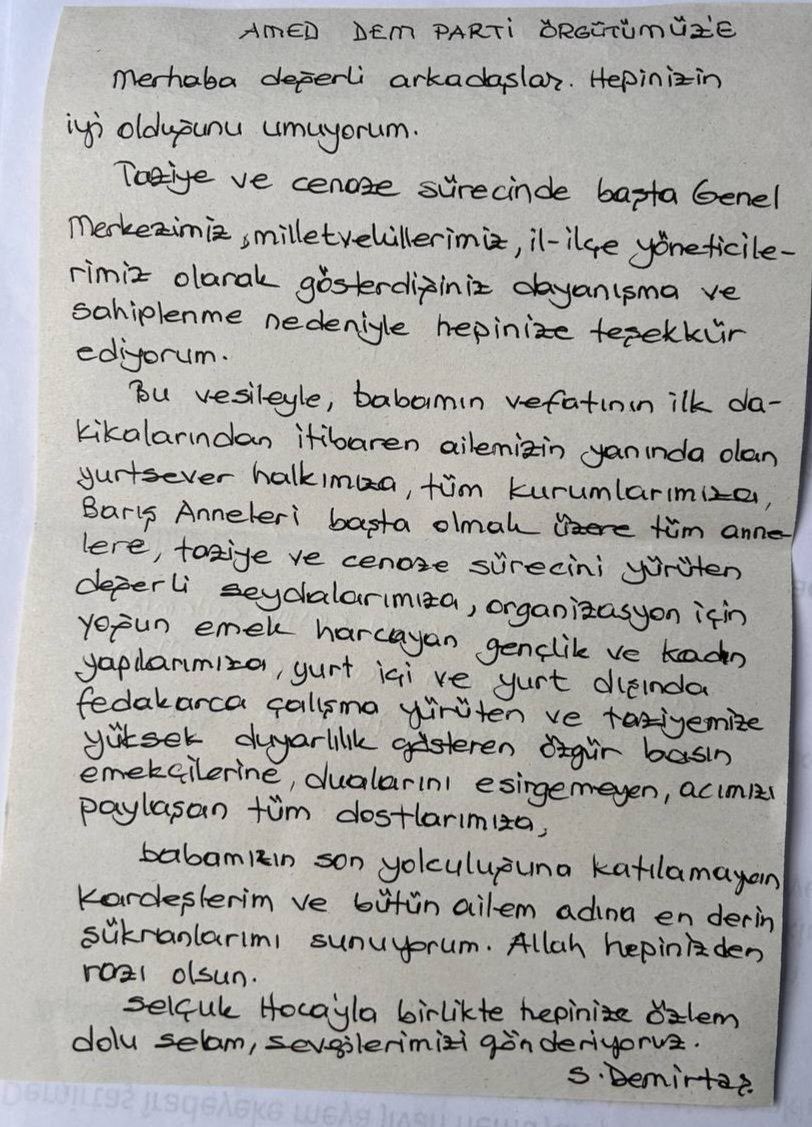 AMED DEM PARTİ ÖRGÜTÜMÜZ'E
Merhaba değerli arkadaşlar. Hepinizin
iyi olduğunu umuyorum.
Taziye ve cenaze sürecinde başta Genel
Merkezimiz, milletvekillerimiz, il-ilçe yöneticile-
rimiz olarak gösterdiğiniz dayanışma ve
sahiplenme nedeniyle hepinize teşekkür
ediyorum.
Bu vesileyle, babamın vefatının ilk da-
kikalarından itibaren ailemizin yanında olan
yurtsever halkımıza, tüm kurumlarımıza,
Barış Anneleri başta olmak üzere tüm anne-
lere, taziye ve cenaze sürecini yürüten
değerli seydalarımıza, organizasyon için
yoğun emek harcayan gençlik ve kadın
yapılarımıza, yurt içi ve yurt dışında
fedakarca çalışma yürüten ve taziyemize
yüksek duyarlılık gösteren özgür basın
emekçilerine, dualarını esirgemeyen, acımızı
paylaşan tüm dostlarımıza,
babamızın son yolculuğuna katılamayan
Kardeşlerim ve bütün ailem adına en derin
şükranlarımı sunuyorum. Allah hepinizden
razı olsun.
Selçuk Hoca'yla birlikte hepinize özlem
dolu selam, sevgilerimizi gönderiyoruz.
S. Demirtaş